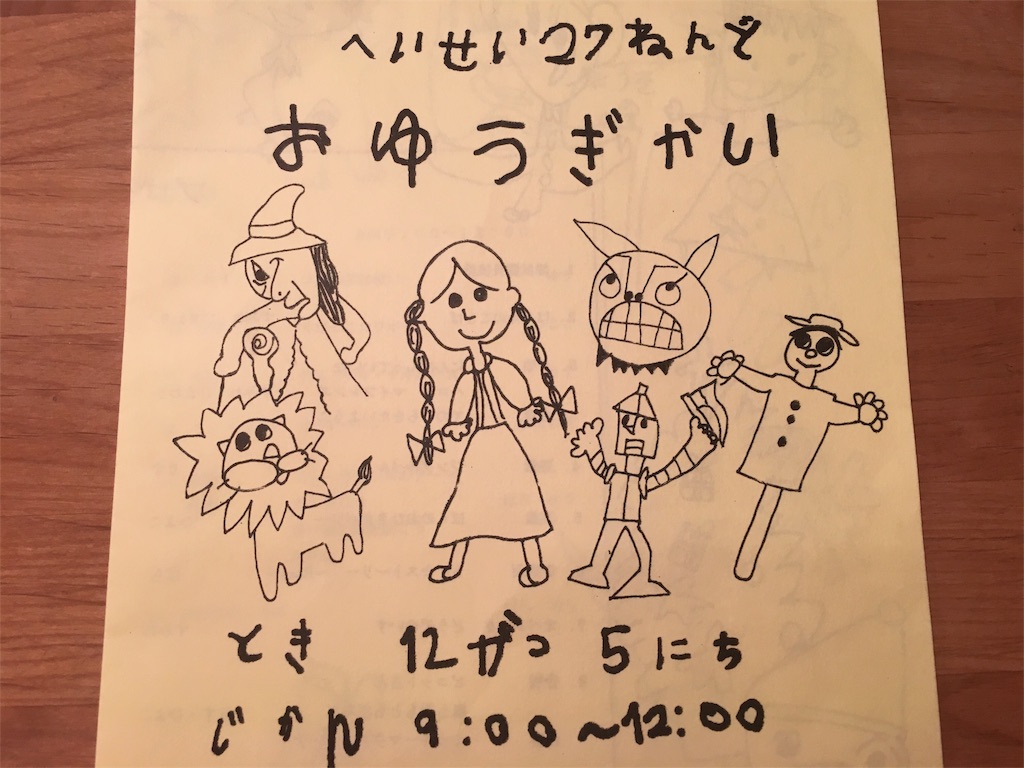 へいせい27ねんど
おゆうぎかい
とき 12がつ 5にち
じかん 9:00～12:00